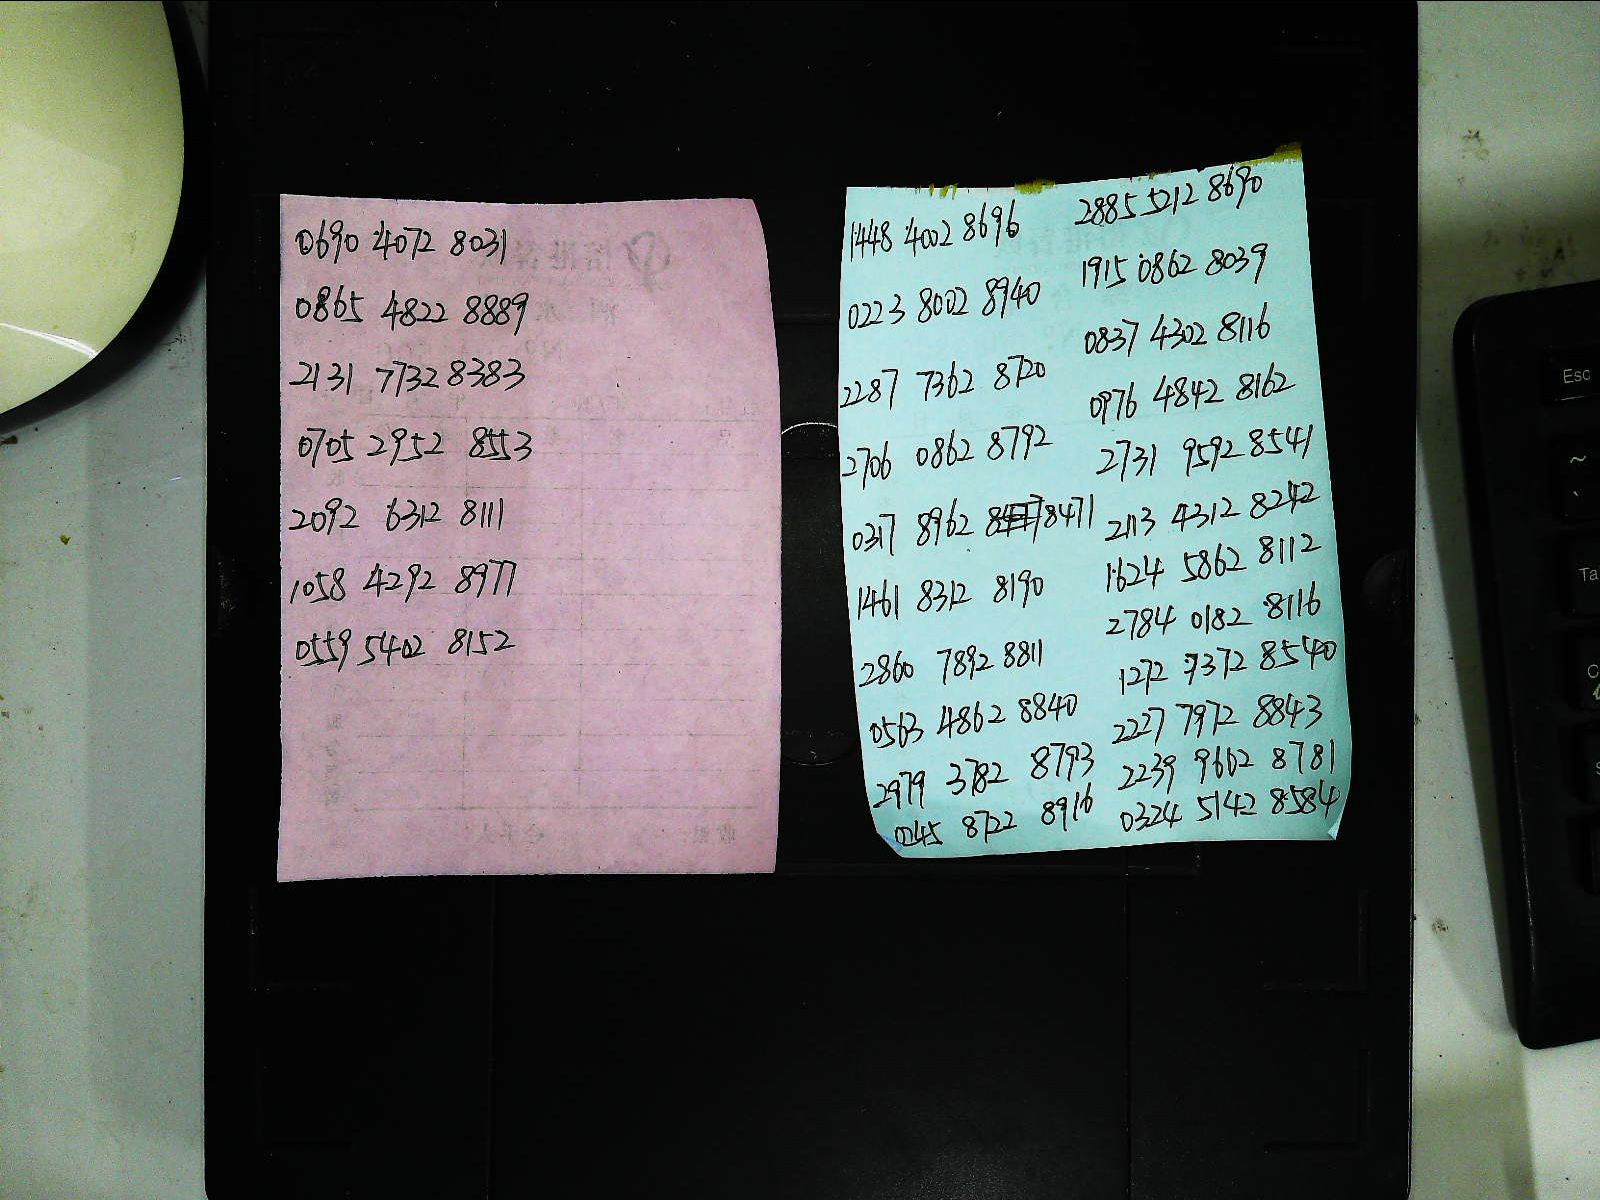 0690 4072 8031
0865 4822 8889
2131 7732 8383
0705 2952 8553
2092 6312 8111
1058 4292 8977
0559 5402 8152
1448 4002 8696
0223 8002 8940
2287 7362 8720
2706 0862 8792
0317 8962 8471
1461 8312 8190
2860 7892 8811
0563 4862 8840
2979 3782 8793
0245 8722 8916
2885 5212 8690
1915 0862 8039
0837 4302 8116
0976 4842 8162
2731 9592 8541
2113 4312 8242
1624 5862 8112
2784 0182 8116
1272 7372 8540
2227 7972 8843
2239 9602 8781
0324 5142 8584
Esc
~